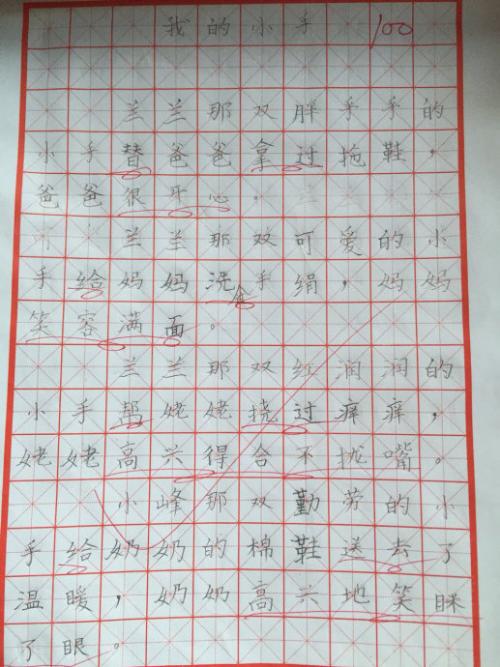 我的小手 100
兰兰那双胖乎乎的
小手替爸爸拿过拖鞋，
爸爸很开心。
兰兰那双可爱的小
手给妈妈洗手绢，妈妈
笑容满面。
兰兰那双红润润的
小手帮姥姥挠过痒痒，
姥姥高兴得合不拢嘴。
小峰那双勤劳的小
手给奶奶的棉鞋送去了
温暖，奶奶高兴地笑眯
了眼。